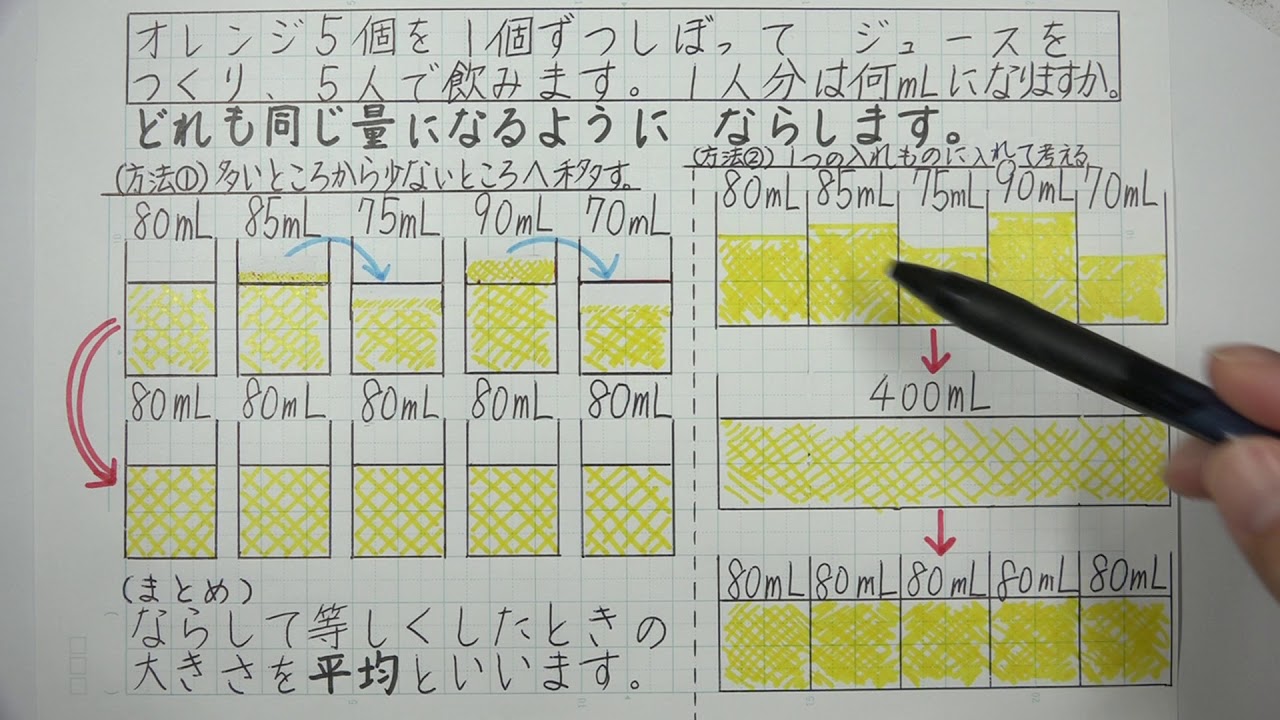 オレンジ5個を1個ずつしぼって ジュースを
つくり、5人で飲みます。1人分は何mLになりますか。
どれも同じ量になるように ならします。
(方法①)多いところから少ないところへ移す。
80mL 85mL 75mL 90mL 70mL
80mL 80mL 80mL 80mL 80mL
(まとめ)
ならして等しくしたときの
大きさを平均といいます。
(方法②)1つの入れものに入れて考える
80mL 85mL 75mL 90mL 70mL
400mL
80mL 80mL 80mL 80mL 80mL